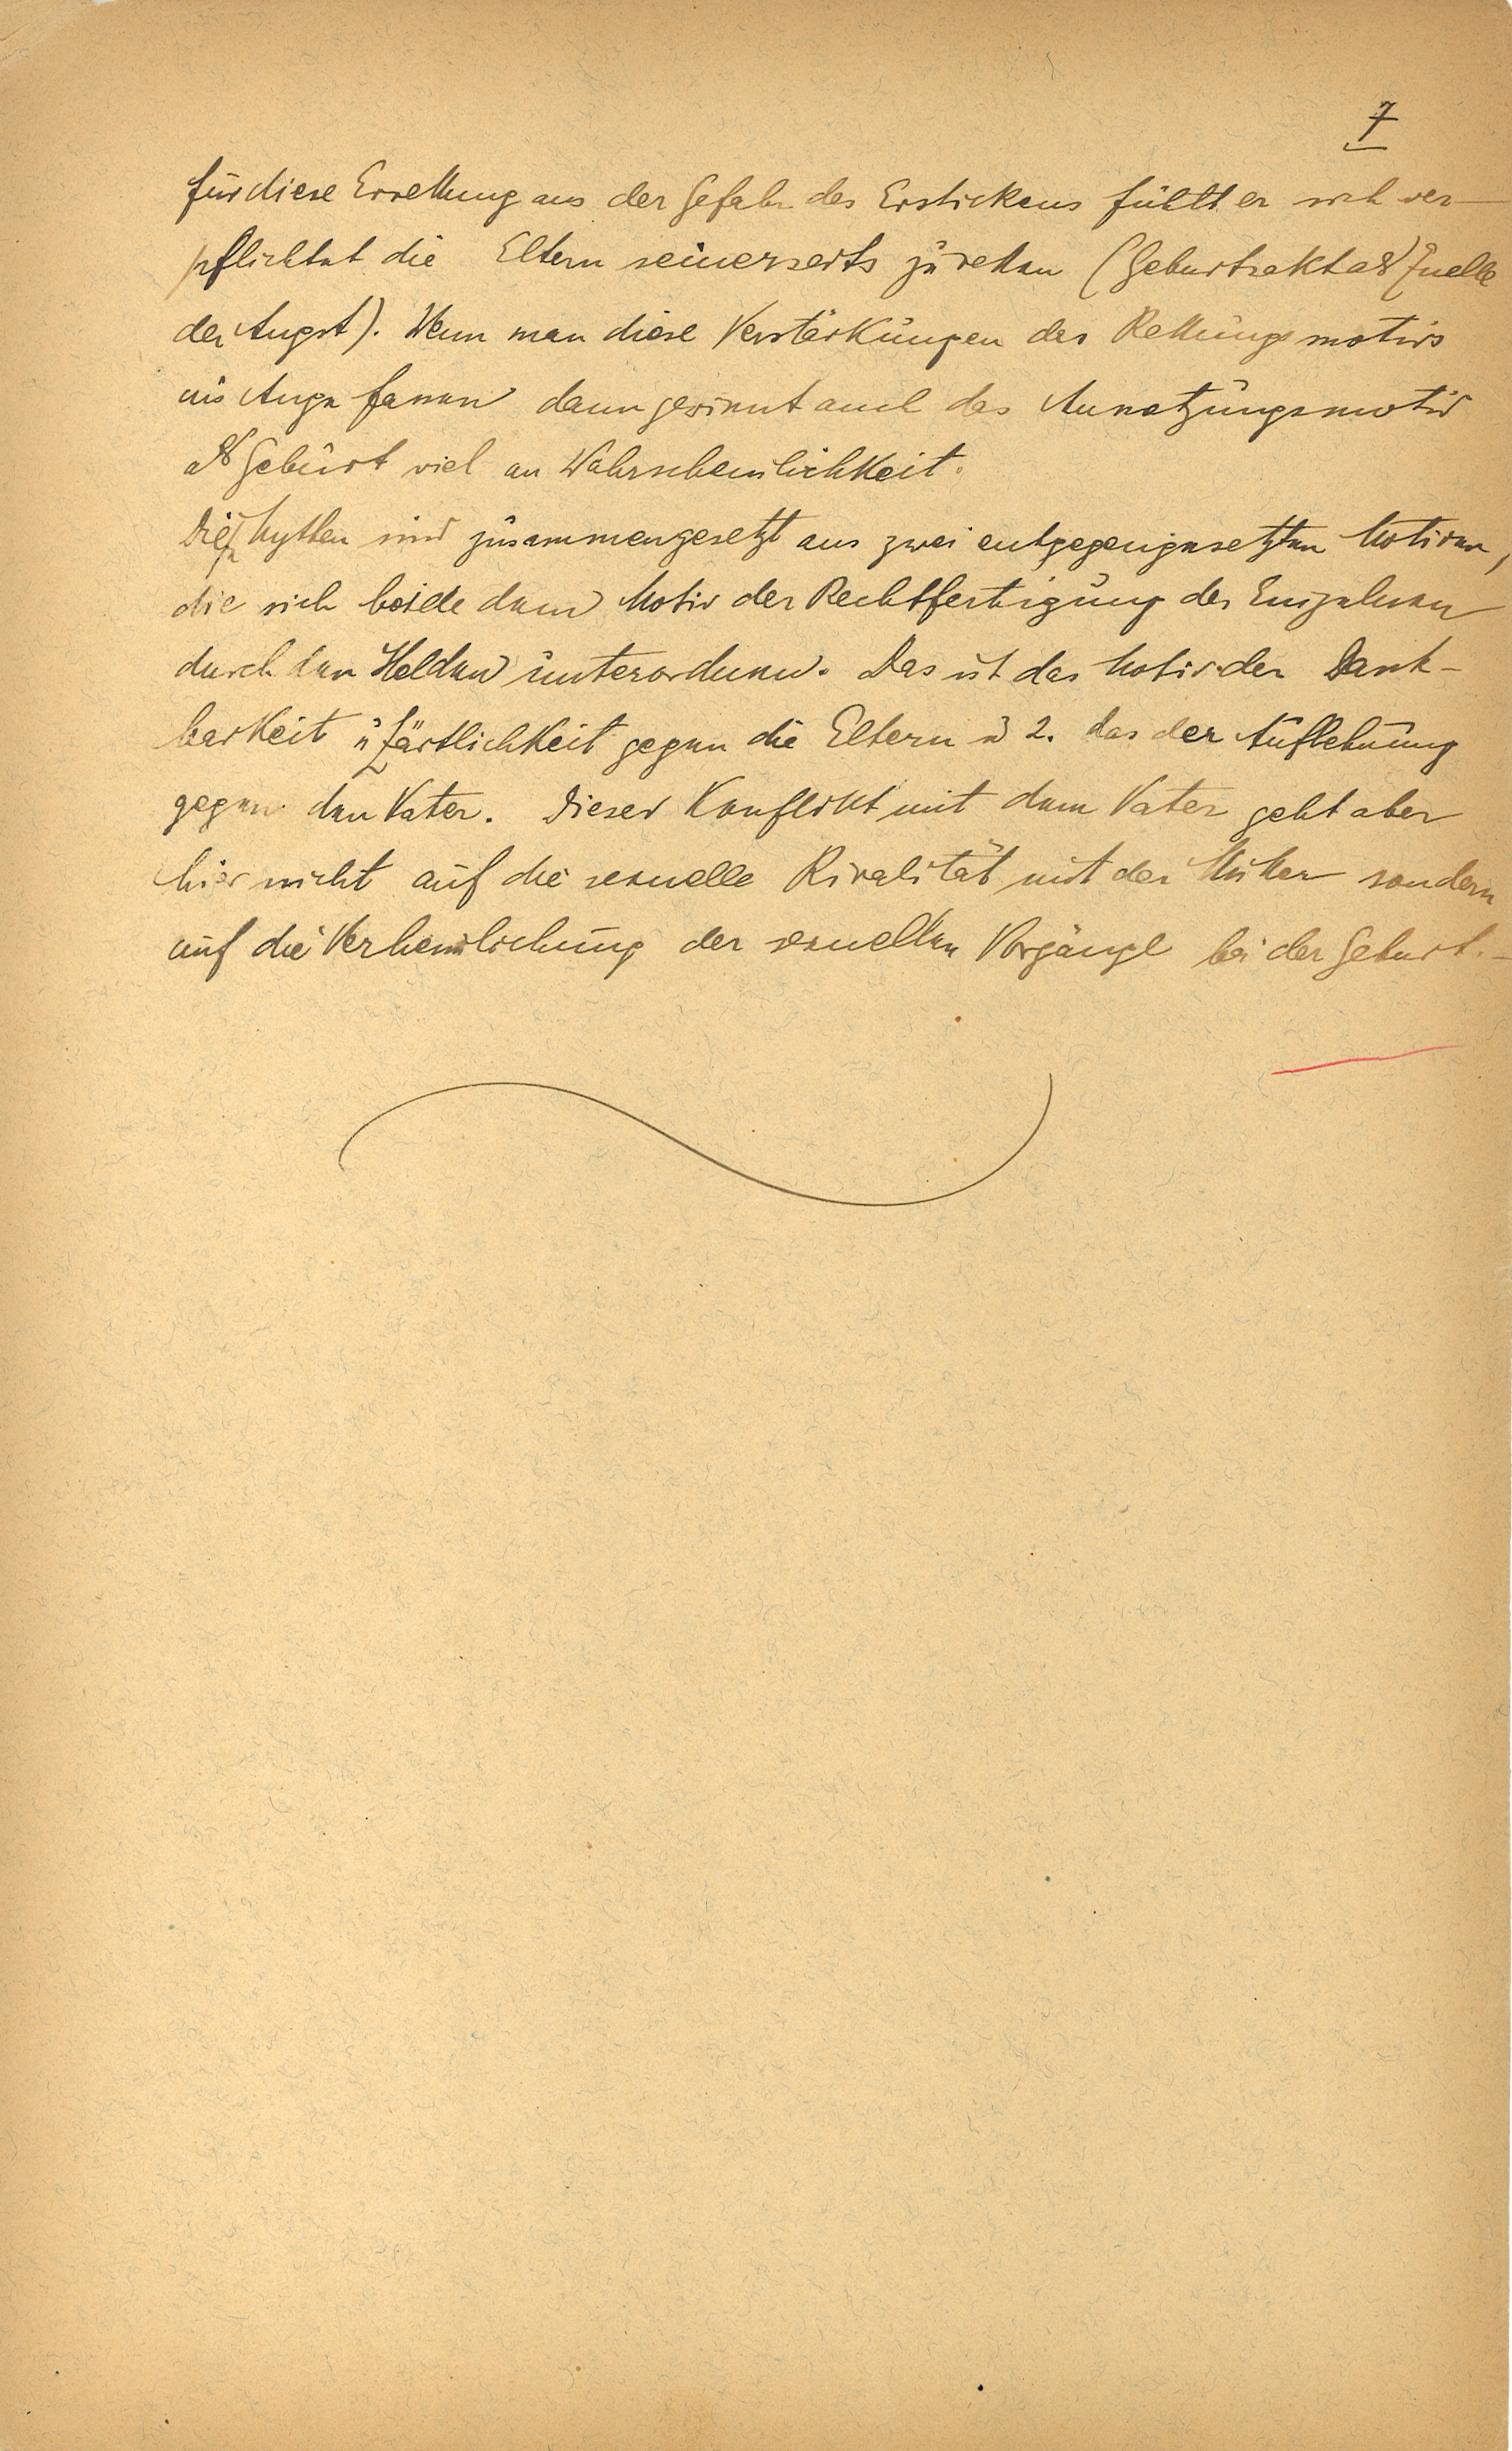 7
für diese Errettung aus der Gefahr des Erstickens fühlt er sich ver-
pflichtet die Eltern seinerseits zu retten (Geburtsakt als Quelle
der Angst). Wenn man diese Verstärkungen des Rettungsmotivs
ins Auge fassen dann gewinnt auch das Aussetzungsmotiv
als Geburt viel an Wahrscheinlichkeit.
Die Mythen sind zusammengesetzt aus zwei entgegengesetzten Motiven,
die sich beide dem Motiv der Rechtfertigung des Einzelnen
durch den Helden unterordnen. Das ist das Motiv der Dank-
barkeit u Zärtlichkeit gegen die Eltern u 2. das der Auflehnung
gegen den Vater. Dieser Konflikt mit dem Vater geht aber
hier nicht auf die sexuelle Rivalität mit der Mutter sondern
auf die Verheimlichung der sexuellen Vorgänge bei der Geburt.-